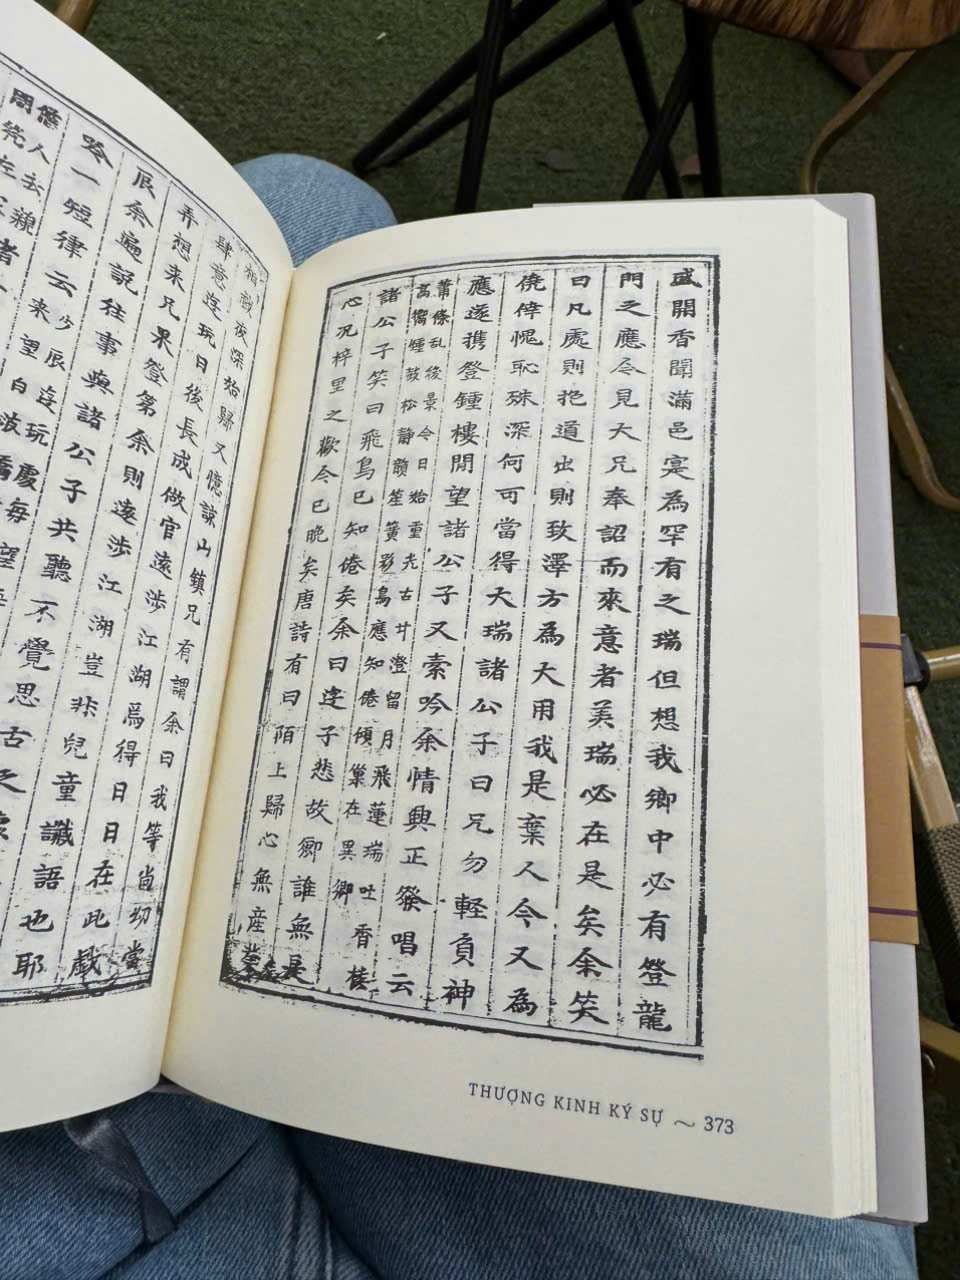 盛開香聞滿邑寔為罕有之瑞但想我鄉中必有登龍
門之應今見大兄奉詔而來意者美瑞必在是矣余笑
曰凡處則抱道出則致澤方為大用我是棄人今又為
僥倖愧恥殊深何可當得大瑞諸公子曰兄勿軽負神
應遂携登鍾樓閒望諸公子又索吟余情興正發唱云
蕭條乱後景今日始重光古井澄留月飛蓮瑞吐香楼
高響鍾鼓松静韻笙簧彩鳥應知倦傾巢在異鄉
諸公子笑曰飛鳥已知倦矣余曰遊子悲故鄉誰無是
心況梓里之歡今已晚矣唐詩有曰陌上歸心無産業
THƯỢNG KINH KÝ SỰ ~ 373
相戲夜深始歸又憶諒山鎮兄有謂余曰我等尚幼當
肆意遊玩日後長成做官遠涉江湖焉得日日在此戲
弄想来兄果登第余則遠涉江湖豈非兒童讖語也耶
辰余遍説往事與諸公子共聽不覺思古之懷
吟一短律云少辰遊玩處每
来望白波